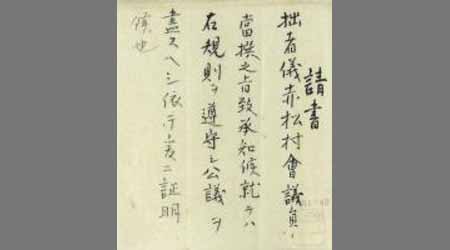 請書
拙者儀赤松村會議員ニ
當撰之旨致承知候就テハ
右規則ヲ遵守シ公議ヲ
盡スヘシ依テ爰ニ証明
候也